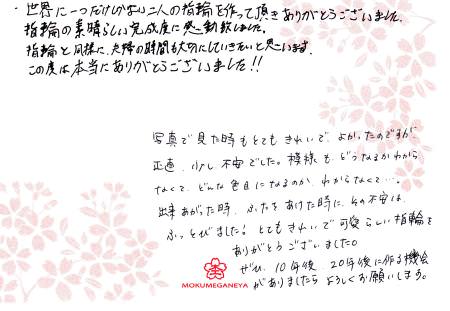 ・世界に一つだけしかない二人の指輪を作って頂きありがとうございました。
指輪の素晴らしい完成度に感動致しました。
指輪と同様に、夫婦の時間も大切にしていきたいと思います。
この度は本当にありがとうございました!!
写真で見た時もとてもきれいで、よかったのですが
正直、少し不安でした。模様も、どうなるかわから
なくて、どんな色目になるのか、わからなくて…。
出来あがった時、ふたをあけた時に、その不安は、
ふっとびました!とてもきれいで可愛らしい指輪を
ありがとうございました。
ぜひ、10年後、20年後に作る機会
がありましたらよろしくお願いします。
MOKUMEGANEYA